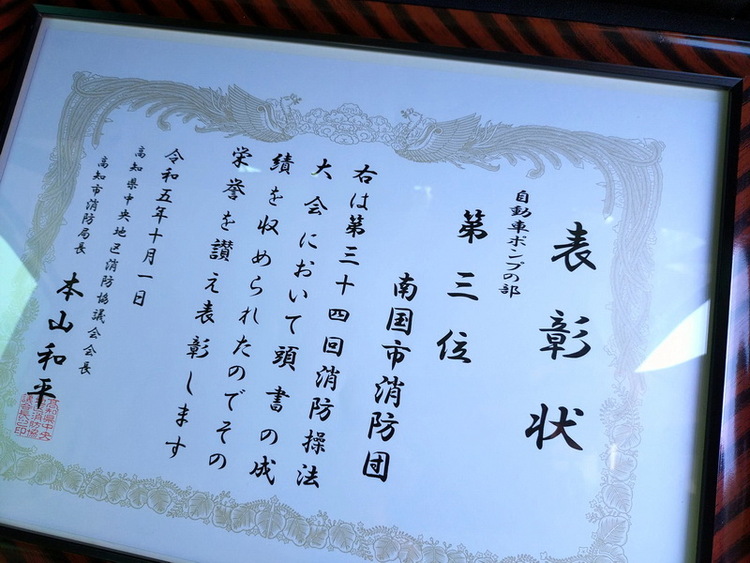 表彰状
自動車ポンプの部
第三位
南国市消防団
右は第三十四回消防操法
大会において頭書の成
績を収められたのでその
栄誉を讃え表彰します
令和五年十月一日
高知県中央地区消防協議会会長
高知市消防局長
本山和平